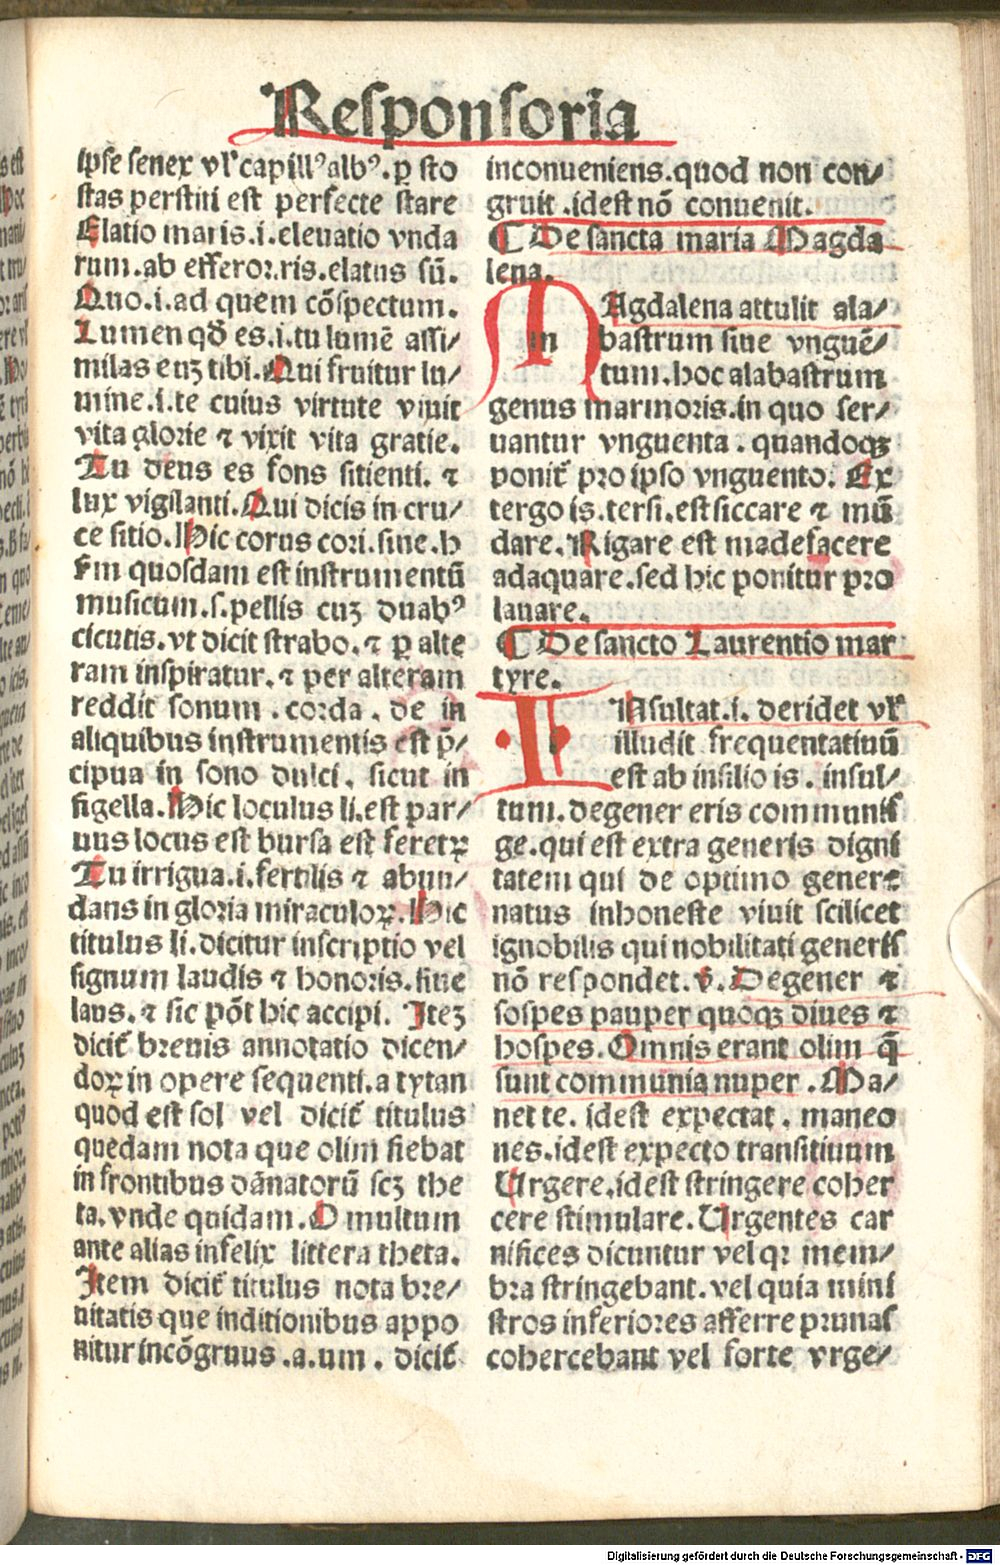 Responsoria
ipse senex vl' capill⁹ alb⁹. ꝑ sto
stas perstiti est perfecte stare
Elatio maris .i. eleuatio vnda
rum. ab efferor.ris. elatus sū.
Quo .i. ad quem cōspectum.
Lumen qđ es .i. tu lumē assi/
milas euꝫ tibi. Qui fruitur lu/
mine .i. te cuius virtute viuit
vita glorie ⁊ vixit vita gratie.
Tu deus es fons sitienti. ⁊
lux vigilanti. Qui dicis in cru/
ce sitio. Hic corus cori. sine .h
fm̄ quosdam est instrumentū
musicum .s. pellis cuꝫ duab⁹
cicutis. vt dicit strabo. ⁊ ꝑ alte
ram inspiratur. ⁊ per alteram
reddit sonum . corda . de in
aliquibus instrumentis est p̄/
cipua in sono dulci . sicut in
figella. Hic loculus li. est par/
uus locus est bursa est feretꝝ
Tu irrigua .i. fertilis ⁊ abun/
dans in gloria miraculoꝝ. Hic
titulus li. dicitur inscriptio vel
signum laudis ⁊ honoris. siue
laus. ⁊ sic pōt hic accipi. Iteꝫ
dicit̄ breuis annotatio dicen/
doꝝ in opere sequenti. a tytan
quod est sol vel dicit̄ titulus
quedam nota que olim fiebat
in frontibus dānatorū scꝫ the
ta. vnde quidam. O multum
ante alias infelix littera theta.
Item dicit̄ titulus nota bre/
uitatis que inditionibus appo
nitur incōgruus .a.um. dicit̄
inconueniens. quod non con/
gruit .idest nō conuenit.
¶ De sancta maria Magda
lena.
MAgdalena attulit ala/
bastrum siue vnguē/
tum. hoc alabastrum
genus marmoris. in quo ser/
uantur vnguenta . quandoqꝫ
ponit̄ pro ipso vnguento. Ex
tergo is. tersi. est siccare ⁊ mū
dare. Rigare est madefacere
adaquare. sed hic ponitur pro
lauare.
¶ De sancto Laurentio mar
tyre.
INsultat .i. deridet vl'
illudit frequentatiuū
est ab insilio is . insul/
tum. degener eris communis
ge. qui est extra generis digni
tatem qui de optimo genere
natus inhoneste viuit scilicet
ignobilis qui nobilitati generis
nō respondet. v̄. Degener ⁊
sospes pauper quoqꝫ diues ⁊
hospes. Omnis erant olim q̄
sunt communia nuper . Ma/
net te. idest expectat . maneo
nes. idest expecto transitiuum
Urgere. idest stringere coher
cere stimulare. Urgentes car
nifices dicuntur vel qr mem/
bra stringebant. vel quia mini
stros inferiores afferre prunas
cohercebant vel forte vrge/
Digitalisierung gefördert durch die Deutsche Forschungsgemeinschaft - DFG